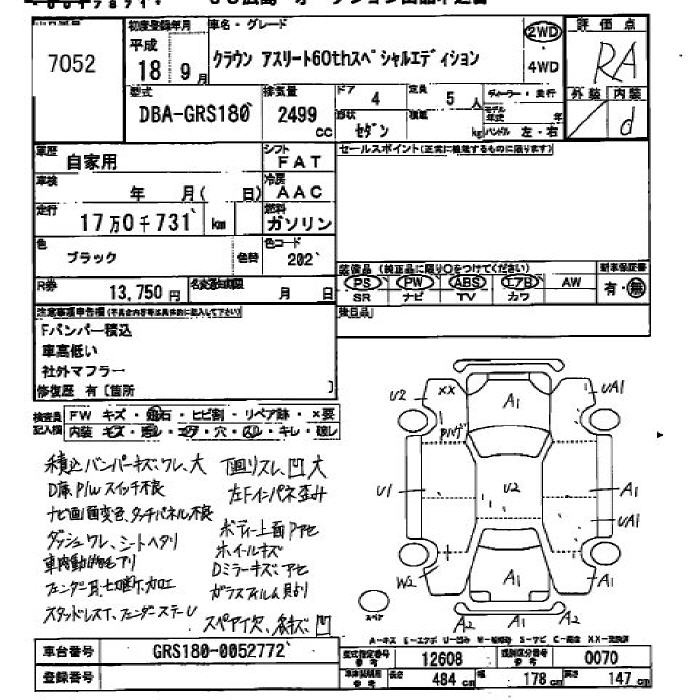 7052
初度登録年月
平成
18 9月
車名・グレード
クラウン アスリート60thスペシャルエディション
2WD
・
4WD
評価点
RA
外装 内装
d
型式
DBA-GRS180
排気量
2499
cc
ドア
4
定員
5 人
形状
セダン
積載
kg
ディーラー・並行
モデル年式 年
ハンドル 左・右
車歴
自家用
シフト
FAT
車検
年 月( 日)
冷房
AAC
走行
17万0千731 km
燃料
ガソリン
色
ブラック
色替
色コード
202
R券
13,750円
名変通知期限
月 日
セールスポイント(正常に機能するものに限ります)
装備品 (純正品に限り○をつけてください)
PS PW ABS エアB AW
SR ナビ TV カワ
新車保証書
有・無
注意事項申告欄(不具合内容等は具体的に記入して下さい)
Fバンパー積込
車高低い
社外マフラー
修復歴 有〔箇所 〕
検査員記入欄
FW キズ・飛石・ヒビ割・リペア跡・×要
内装 キズ・汚レ・コゲ・穴・スレ・キレ・破レ
積込バンパーキズ、ワレ、大
D席P/Wスイッチ不良
ナビ画面変色、タッチパネル不良
ダッシュワレ、シートヘタリ
車内動物毛アリ
スタッドレスT、フェンダーステーU
下廻リスレ、凹大
左Fインパネ歪み
ボディー上面Pアセ
ホイールキズ
Dミラーキズ、アセ
ガラスフィルム貼り
スペア欠
U2
XX
A1
UA1
U1
U2
A1
UA1
W2
A1
A1
A2
A2
スペア
車台番号
GRS180-0052772
登録番号
型式指定番号
参考
12608
類別区分番号
参考
0070
長さ
484 cm
幅
178 cm
高さ
147 cm